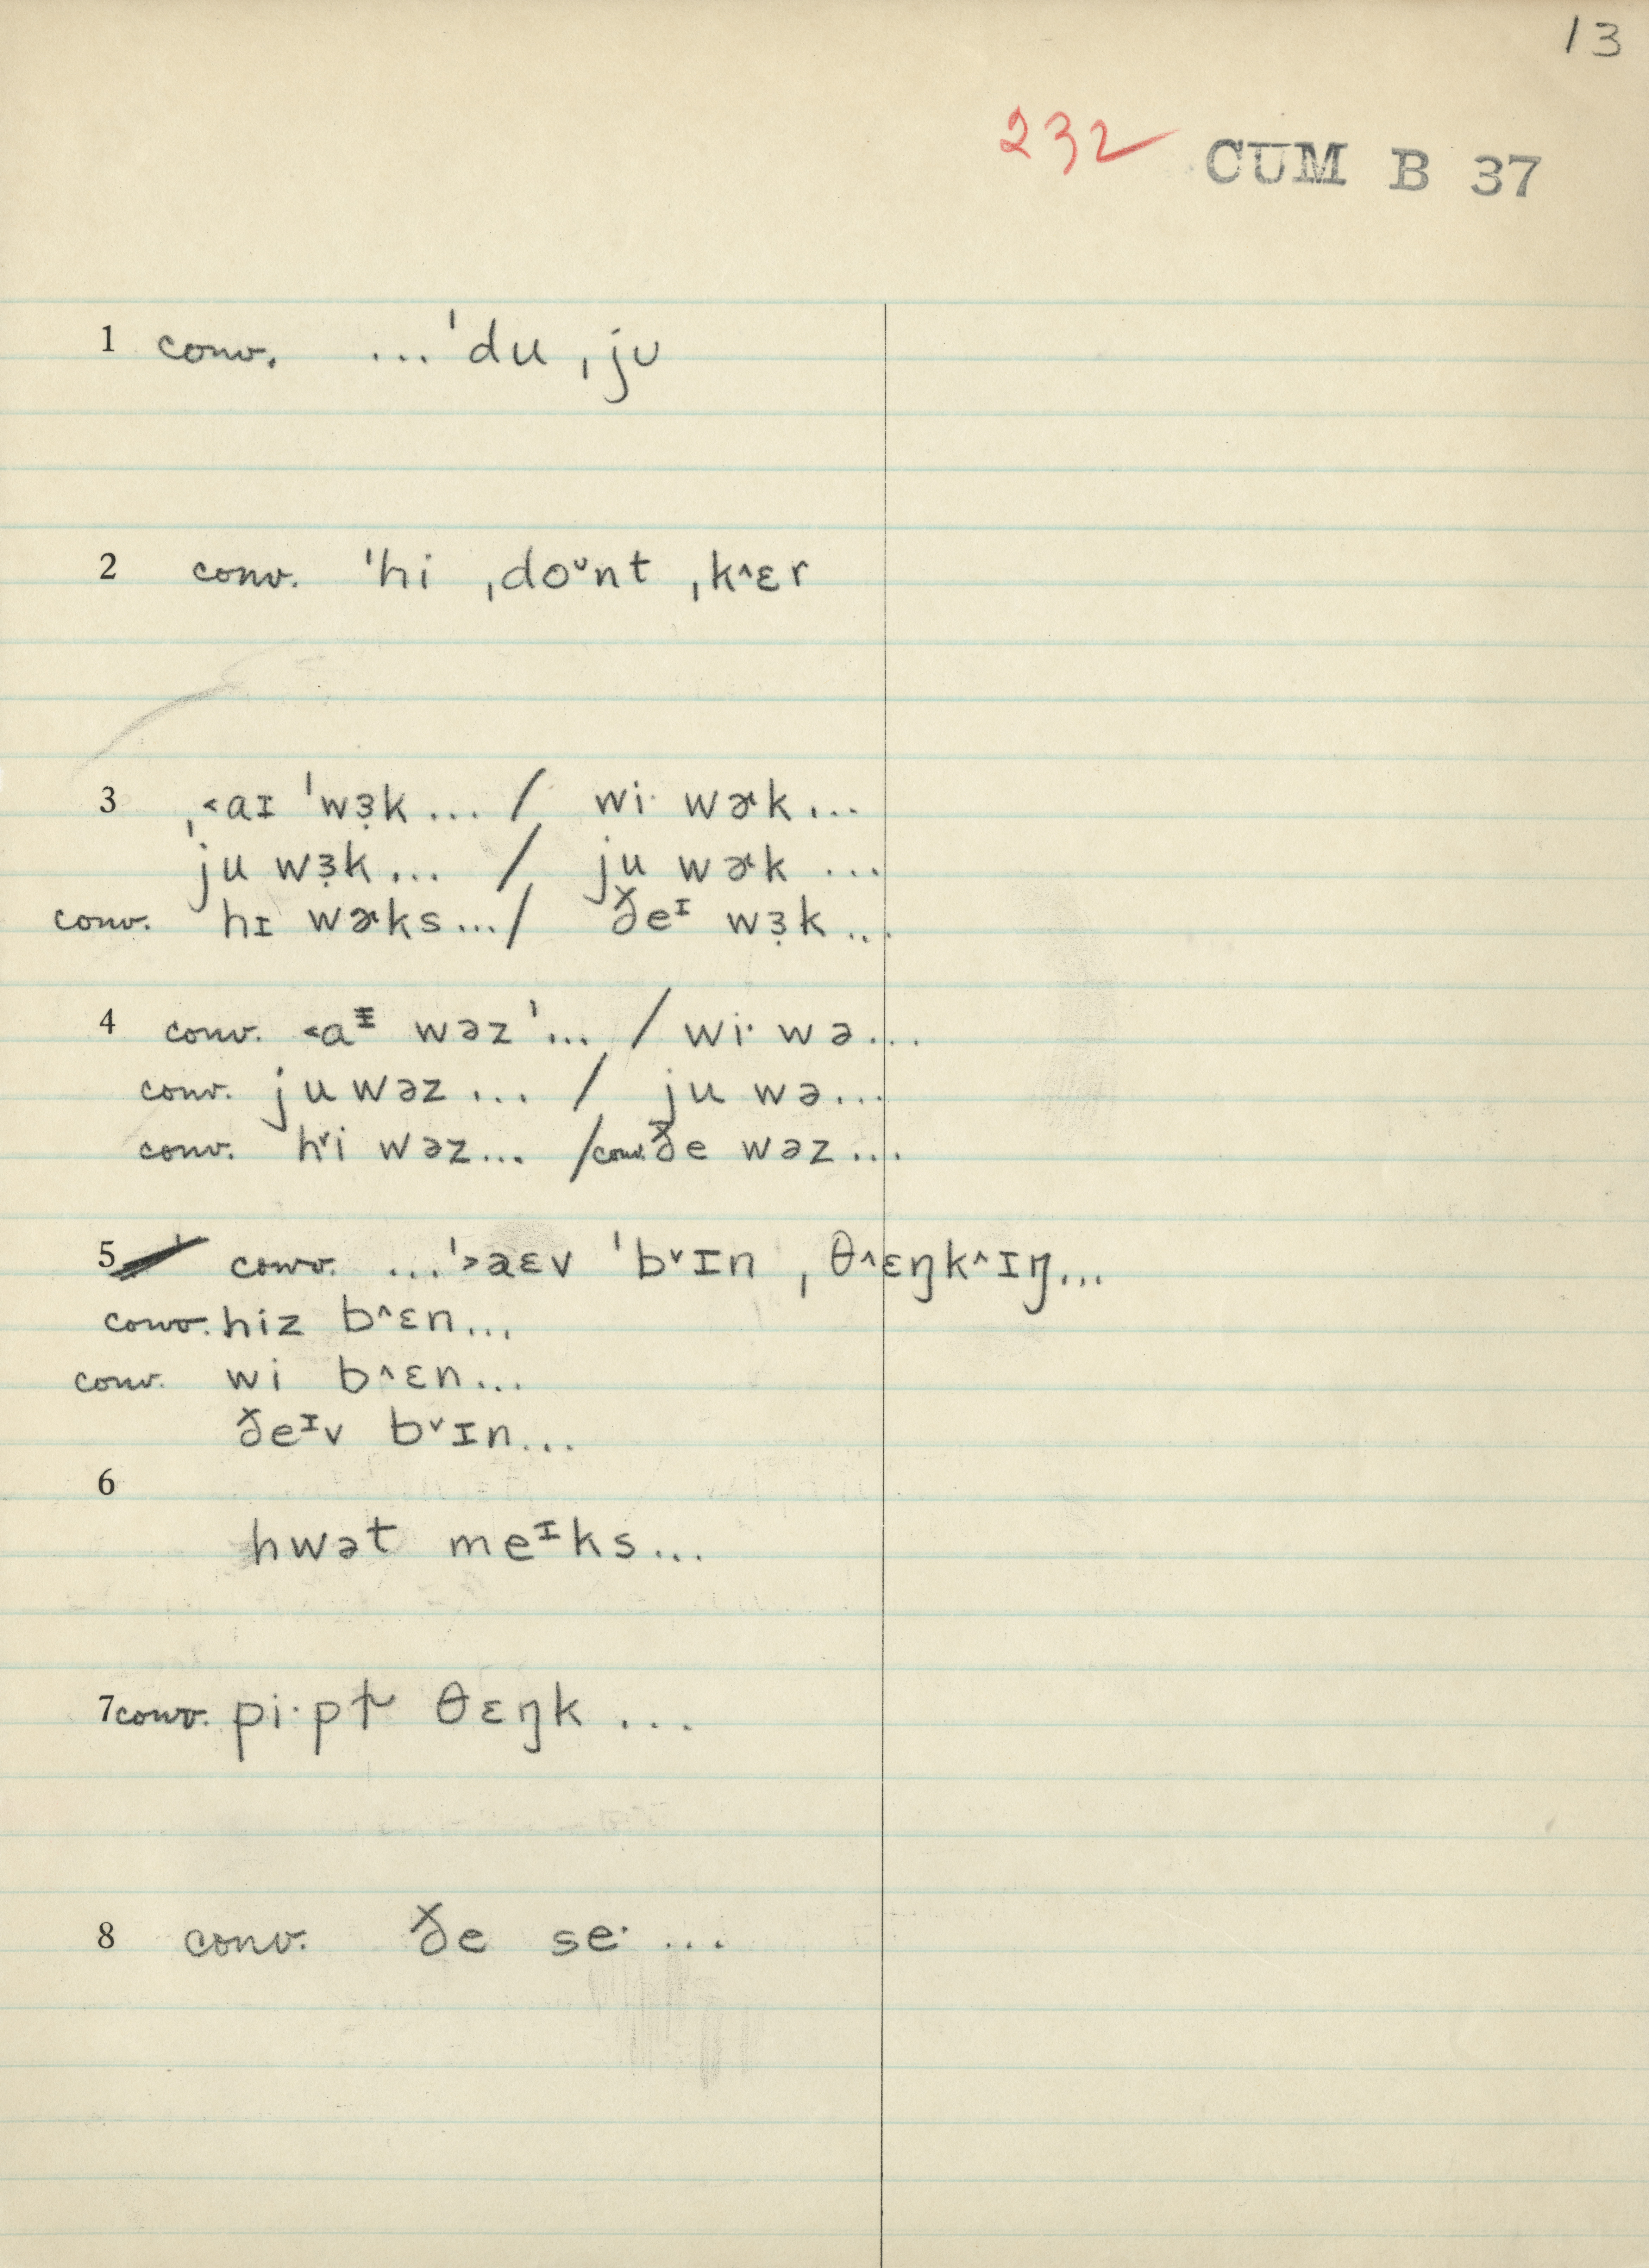 13
232 CUM B 37
1 conv. ... ˈdu ˌjᴜ
2 conv. ˈhi ˌdoᵛnt ˌk^ɛr
3 ˌ<aɪ ˈwɜ̣k ... / wi· wɚk ...
ju wɜ̣k ... / ju wɚk ...
conv. hɪ wɚks ... / ðeᶦ wɜ̣k ...
4 conv. <aᶦ wəz ˈ... / wi· wə ...
conv. ju wəz ... / ju wə ...
conv. hᵛi wəz ... / conv. ðe wəz ...
5 conv. ... ˈ>æɛv ˈbᵛɪn ˌθ^ɛŋk^ɪŋ ...
conv. hiz b^ɛn ...
conv. wi b^ɛn ...
ðeᶦv bᵛɪn ...
6
hwət meᶦks ...
7 conv. pi·pɫ θɛŋk ...
8 conv. ðe se· ...